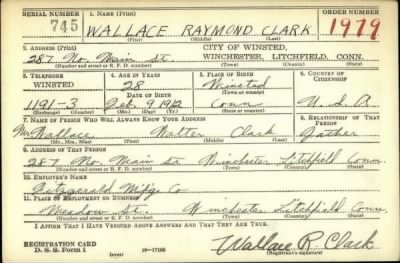 SERIAL NUMBER 1. NAME (Print) ORDER NUMBER
745 WALLACE RAYMOND CLARK 1979
(First) (Middle) (Last)
2. ADDRESS (Print) CITY OF WINSTED,
287 No. Main St. WINCHESTER, LITCHFIELD, CONN.
(Number and street or R. F. D. number) (Town) (County) (State)
3. TELEPHONE 4. AGE IN YEARS 5. PLACE OF BIRTH 6. COUNTRY OF CITIZENSHIP
WINSTED 28 Winsted
DATE OF BIRTH (Town or county)
1191-3 Feb. 9 1912 Conn U. S. A.
(Exchange) (Number) (Mo.) (Day) (Yr.) (State or country)
7. NAME OF PERSON WHO WILL ALWAYS KNOW YOUR ADDRESS 8. RELATIONSHIP OF THAT PERSON
Mr. Wallace Walter Clark Father
(Mr., Mrs., Miss) (First) (Middle) (Last)
9. ADDRESS OF THAT PERSON
287 No. Main St Winchester Litchfield Conn.
(Number and street or R. F. D. number) (Town) (County) (State)
10. EMPLOYER'S NAME
Fitzgerald Mfg. Co
11. PLACE OF EMPLOYMENT OR BUSINESS
Meadow St. Winchester Litchfield Conn.
(Number and street or R. F. D. number) (Town) (County) (State)
I AFFIRM THAT I HAVE VERIFIED ABOVE ANSWERS AND THAT THEY ARE TRUE.
REGISTRATION CARD
D. S. S. Form 1 (over) 16—17105 Wallace R. Clark
(Registrant's signature)